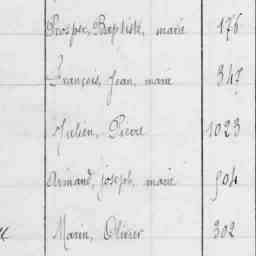 Prosper, Baptiste, marie 176
François, Jean, marie 347
Julien, Pierre 1023
Armand, Joseph, marie 904
Marin, Olivier 302